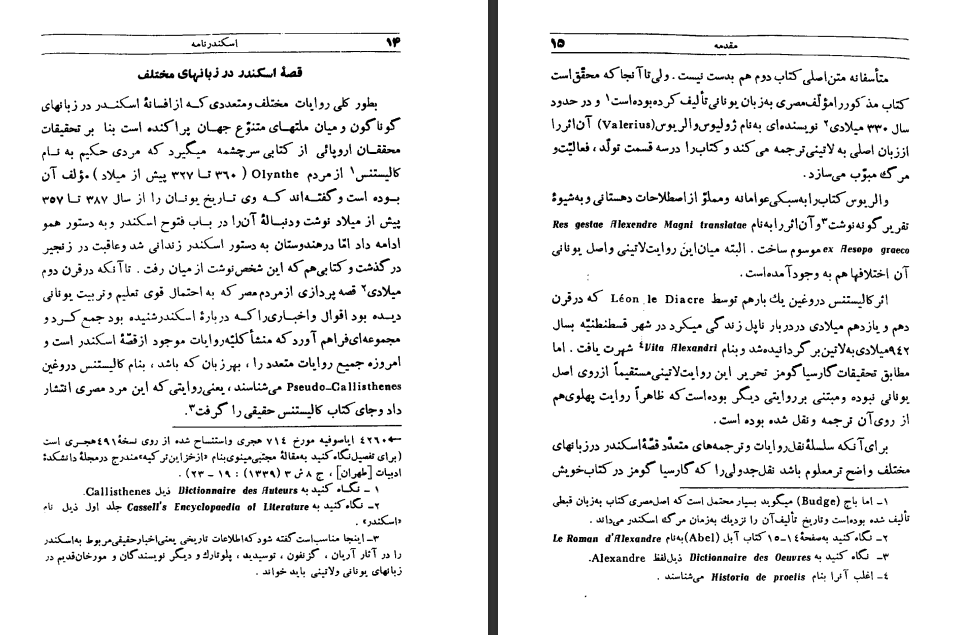 ۱۴
اسکندرنامه
قصهٔ اسکندر در زبانهای مختلف
بطور کلی روایات مختلف و متعددی که از افسانهٔ اسکندر در زبانهای
گوناگون و میان ملتهای متنوّع جهان پراکنده است بنا بر تحقیقات
محققان اروپائی از کتابی سرچشمه میگیرد که مردی حکیم به نام
کالیستنس۱ از مردم Olynthe ( ۳۶۰ تا ۳۲۷ پیش از میلاد ) مؤلف آن
بوده است و گفته‌اند که وی تاریخ یونان را از سال ۳۸۷ تا ۳۵۷
پیش از میلاد نوشت و دنبالهٔ آن‌را در باب فتوح اسکندر و به دستور همو
ادامه داد امّا در هندوستان به دستور اسکندر زندانی شد و عاقبت در زنجیر
درگذشت و کتابی هم که این شخص نوشت از میان رفت . تا آنکه در قرن دوم
میلادی۲ قصه پردازی از مردم مصر که به احتمال قوی تعلیم و تربیت یونانی
دیده بود اقوال و اخباری را که دربارهٔ اسکندر شنیده بود جمع کرد و
مجموعه‌ای فراهم آورد که منشأ کلیّه روایات موجود از قصّهٔ اسکندر است و
امروزه جمیع روایات متعدد را ، بهر زبان که باشد ، بنام کالیستنس دروغین
Pseudo-Callisthenes می‌شناسند ، یعنی روایتی که این مرد مصری انتشار
داد و جای کتاب کالیستنس حقیقی را گرفت۳.
←۴۲۶۰ ایاصوفیه مورخ ۷۱۴ هجری و استنساخ شده از روی نسخهٔ ۴۹۱ هجری است
(برای تفصیل نگاه کنید به مقالهٔ مجتبی مینوی بنام «از خزاین ترکیه» مندرج در مجلهٔ دانشکدهٔ
ادبیات [طهران] ، ج ۸ ش ۳ (۱۳۳۹) : ۱۹ - ۲۳) .
۱ - نگاه کنید به Dictionnaire des Auteurs ذیل Callisthenes.
۲- نگاه کنید به Cassell's Encyclopaedia of Literature جلد اول ذیل نام
«اسکندر» .
۳- اینجا مناسب است گفته شود که اطلاعات تاریخی یعنی اخبار حقیقی مربوط به اسکندر
را در آثار آریان ، گزنفون ، توسیدید ، پلوتارك و دیگر نویسندگان و مورخان قدیم در
زبانهای یونانی و لاتینی باید خواند .
مقدمه
۱۵
متأسفانه متن اصلی کتاب دوم هم بدست نیست . ولی تا آنجا که محقّق است
کتاب مذکور را مؤلّف مصری به زبان یونانی تألیف کرده بوده است۱ و در حدود
سال ۳۳۰ میلادی۲ نویسنده‌ای به نام ژولیوس والریوس (Valerius) آن اثر را
از زبان اصلی به لاتینی ترجمه می کند و کتاب را در سه قسمت تولّد ، فعالیّت و
مرگ مبوّب می‌سازد.
والریوس کتاب را به سبکی عوامانه و مملوّ از اصطلاحات دهستانی و به شیوهٔ
تقریر گونه نوشت۳ و آن اثر را به نام Res gestae Alexendre Magni translatae
ex Aesopo graeco موسوم ساخت . البته میان این روایت لاتینی و اصل یونانی
آن اختلافها هم به وجود آمده است.
اثر کالیستنس دروغین یك بار هم توسط Léon le Diacre که در قرن
دهم و یازدهم میلادی در دربار ناپل زندگی میکرد در شهر قسطنطنیّه بسال
۹۴۲ میلادی به لاتین برگردانیده شد و بنام Vita Alexandri۴ شهرت یافت . اما
مطابق تحقیقات گارسیا گومز تحریر این روایت لاتینی مستقیماً از روی اصل
یونانی نبوده و مبتنی بر روایتی دیگر بوده است که ظاهراً روایت پهلوی هم
از روی آن ترجمه و نقل شده بوده است .
برای آنکه سلسلهٔ نقل روایات و ترجمه‌های متعدّد قصّهٔ اسکندر در زبانهای
مختلف واضح تر معلوم باشد نقل جدولی را که گارسیا گومز در کتاب خویش
۱- اما باج (Budge) میگوید بسیار محتمل است که اصل مصری کتاب به زبان قبطی
تألیف شده بوده است و تاریخ تألیف آن را نزدیك به زمان مرگ اسکندر می‌داند .
۲- نگاه کنید به صفحهٔ ۱۴-۱۵ کتاب آبل (Abel) به نام Le Roman d'Alexandre
۳- نگاه کنید به Dictionnaire des Oeuvres ذیل لفظ Alexandre.
۴- اغلب آنرا بنام Historia de proelis می‌شناسند .